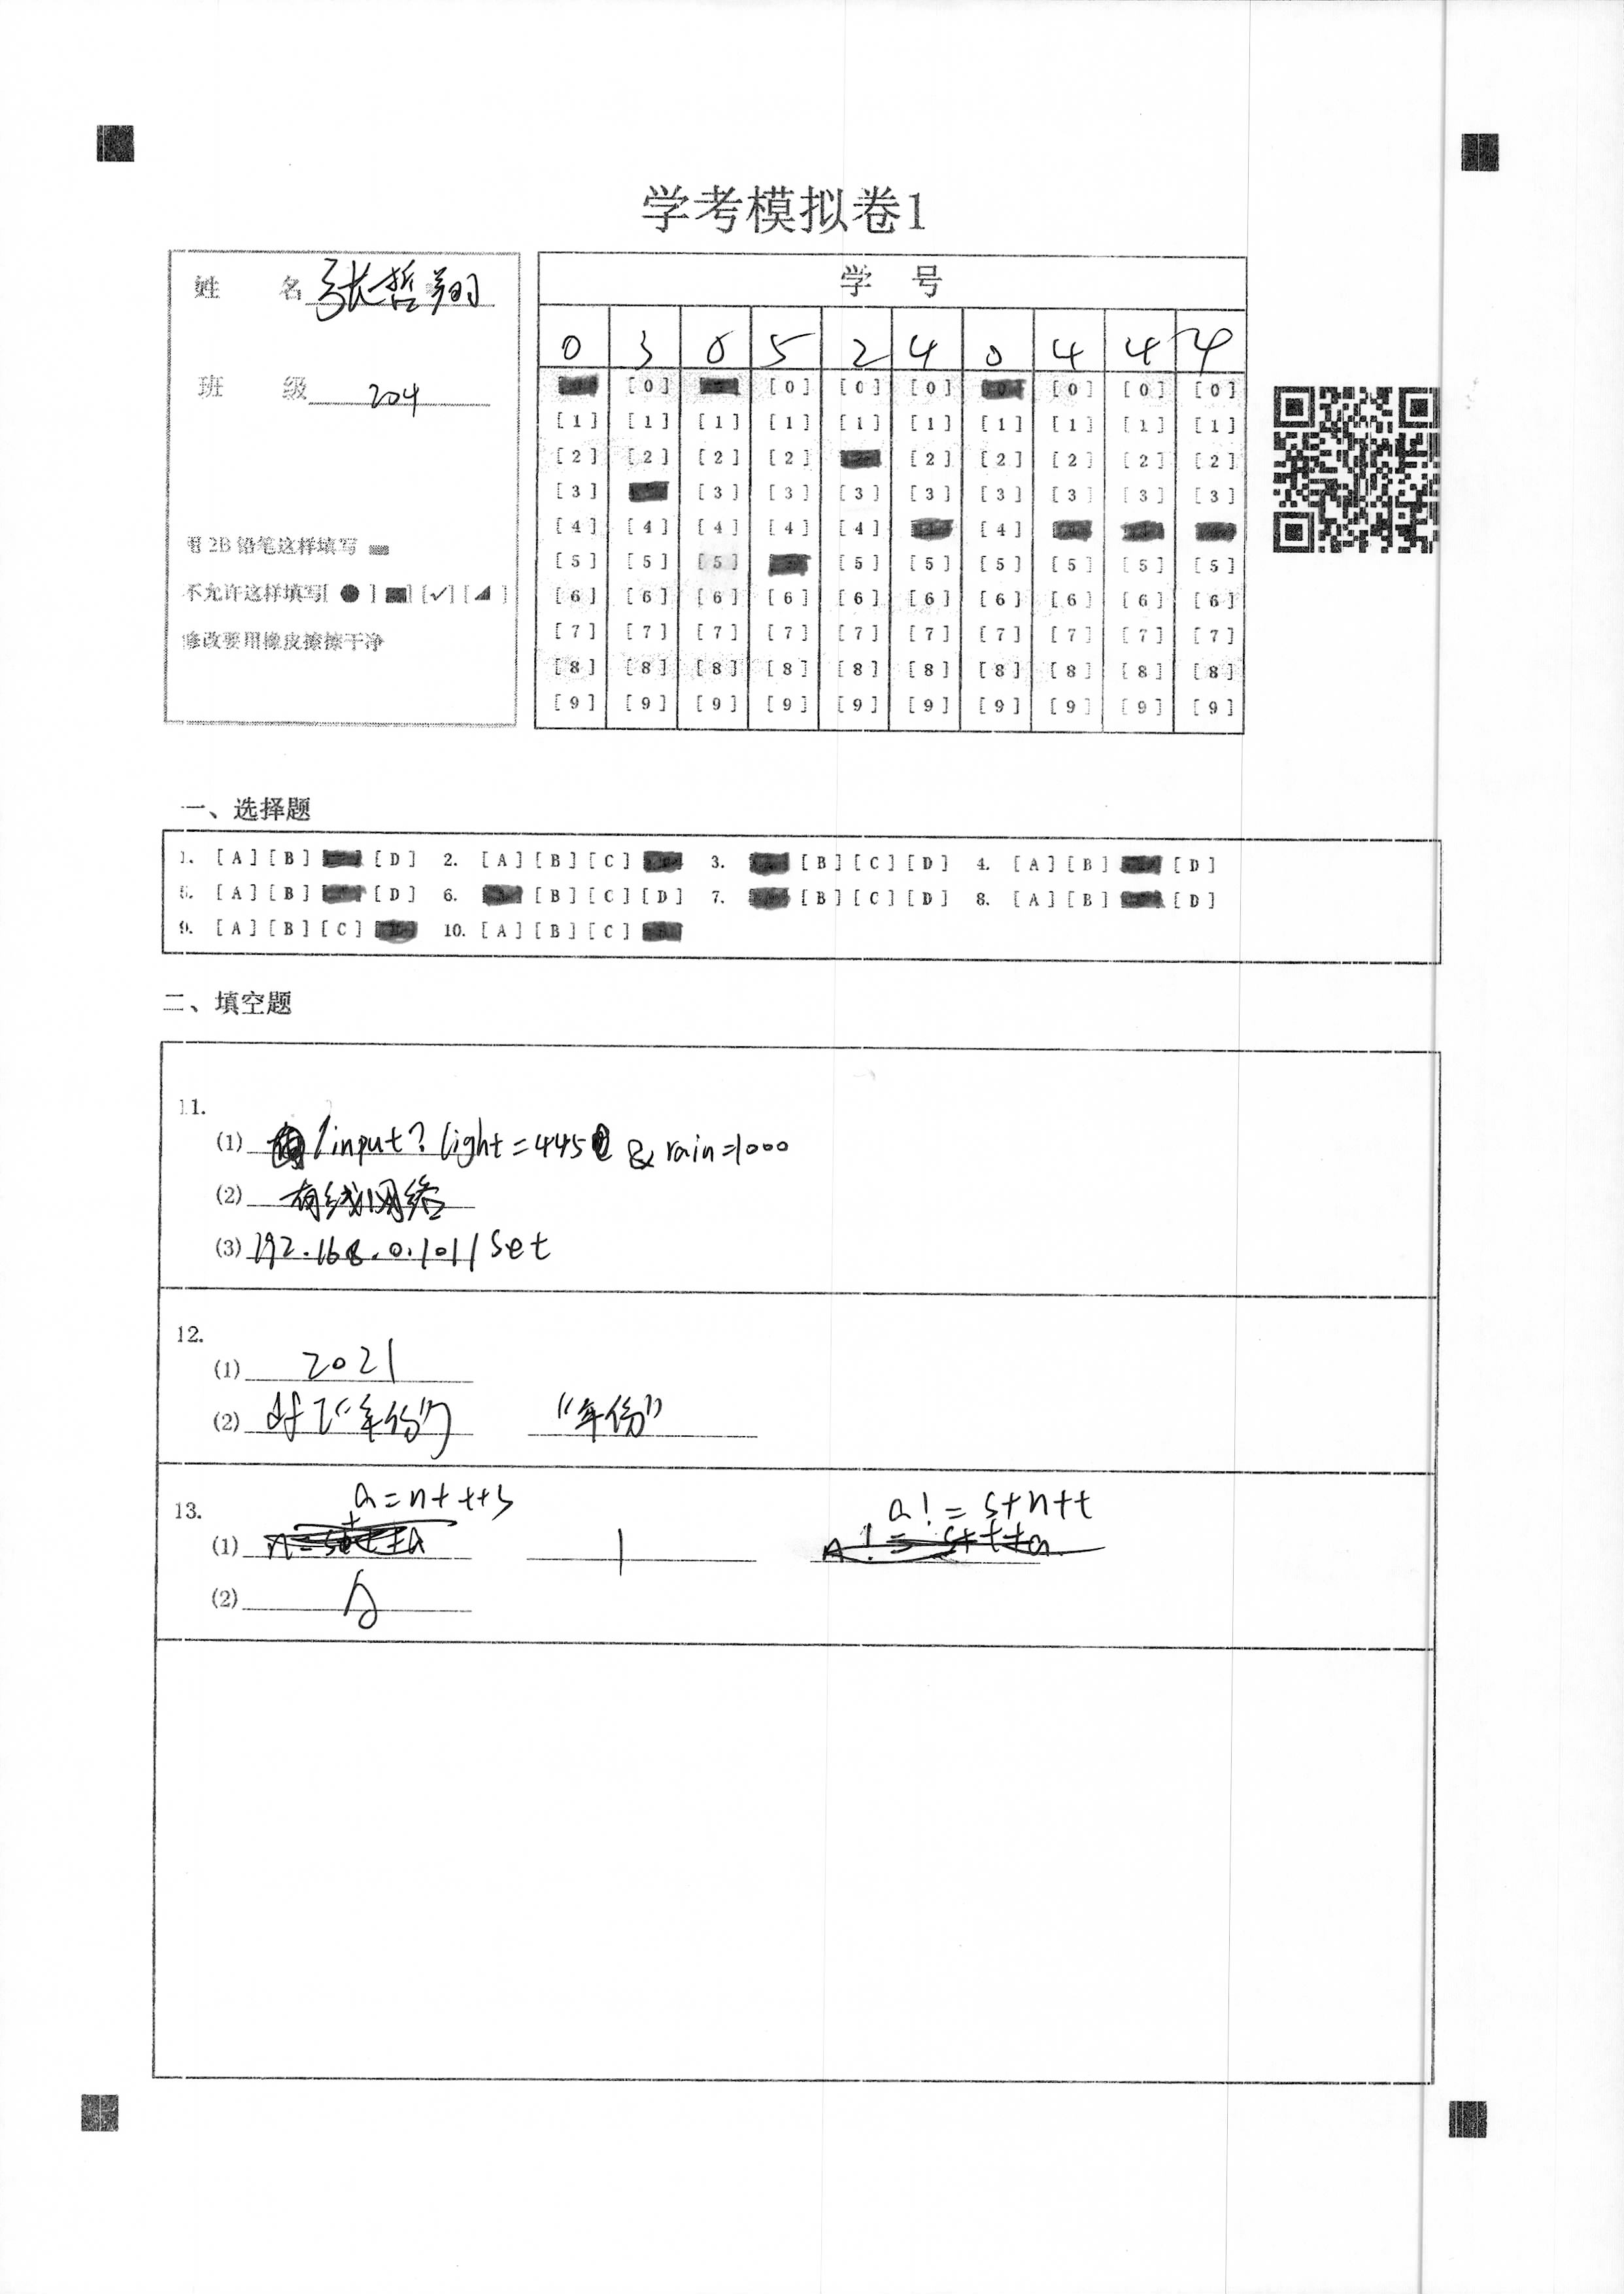 学考模拟卷1
姓 名 张哲翔
班 级 204
用 2B 铅笔这样填写
不允许这样填写[ ● ] [■] [✓] [◢ ]
修改要用橡皮擦擦干净
学 号
0 3 0 5 2 4 0 4 4 4
[0] [0] [0] [0] [0] [0] [0]
[1] [1] [1] [1] [1] [1] [1] [1] [1] [1]
[2] [2] [2] [2] [2] [2] [2] [2] [2]
[3] [3] [3] [3] [3] [3] [3] [3] [3]
[4] [4] [4] [4] [4] [4]
[5] [5] [5] [5] [5] [5] [5] [5] [5]
[6] [6] [6] [6] [6] [6] [6] [6] [6] [6]
[7] [7] [7] [7] [7] [7] [7] [7] [7] [7]
[8] [8] [8] [8] [8] [8] [8] [8] [8] [8]
[9] [9] [9] [9] [9] [9] [9] [9] [9] [9]
一、选择题
1. [A] [B] [D] 2. [A] [B] [C] 3. [B] [C] [D] 4. [A] [B] [D]
5. [A] [B] [D] 6. [B] [C] [D] 7. [B] [C] [D] 8. [A] [B] [D]
9. [A] [B] [C] 10. [A] [B] [C]
二、填空题
11.
(1) /input?light=445 & rain=1000
(2) 有线网络
(3) 192.168.0.101/set
12.
(1) 2021
(2) df["年份"] "年份"
13.
(1) a=n+t+s 1 a!=s+n+t
(2)